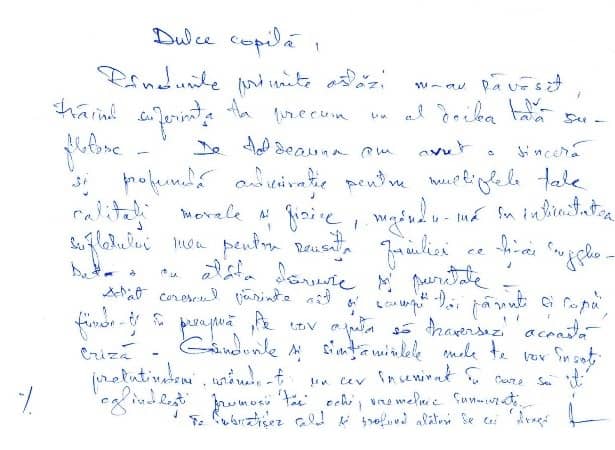 Dulce copilă,
Rîndurile primite astăzi m-au răvășit,
trăind suferința ta precum un al doilea tată su-
fletesc - De totdeauna am avut o sinceră
și profundă admirație pentru multiplele tale
calități morale și fizice, rugându-mă în intimitatea
sufletului meu pentru reușita familiei ce ți-ai
cu atâta dăruire și puritate -
Atât cerescul părinte cît și scumpii tăi părinți și copii,
fiindu-ți în preajmă, te vor ajuta să traversezi această
criză - Gândurile și simțămintele mele te vor însoți
pretutindeni, urându-ți un cer înseninat în care să îți
oglindești frumoșii tăi ochi, vremelnic
Te îmbrățișez cald și profund alături de cei dragi
%